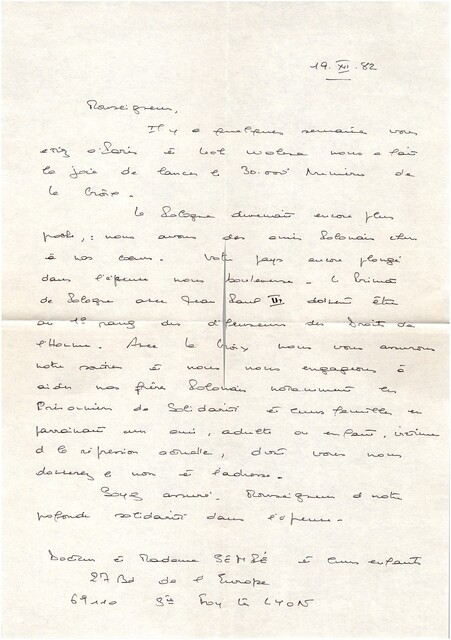 19. XII. 82
Monseigneur,
Il y a quelques semaines vous
étiez à Paris et Lech Walesa nous a fait
la joie de lancer le 30.000 Numéro de
la Croix.
La Pologne devenait encore plus
proche, : nous avons des amis Polonais chers
à nos cœurs. Votre pays encore plongé
dans l'épreuve nous bouleverse. Le Primat
de Pologne avec Jean Paul II, doivent être
au 1er rang des défenseurs des Droits de
l'Homme. Avec la Croix nous vous assurons
notre et nous nous engageons à
aider nos frères Polonais notamment les
Prisonniers de Solidarité et leurs familles en
parrainant un ami, adulte ou enfant, victime
de la répression actuelle, dont vous nous
donnerez le nom et l'adresse.
Soyez assuré. Monseigneur de notre
profonde solidarité dans l'épreuve.
Docteur et Madame SEMBÉ et leurs enfants
27 Bd de l'Europe
69110 Ste Foy lès LYON